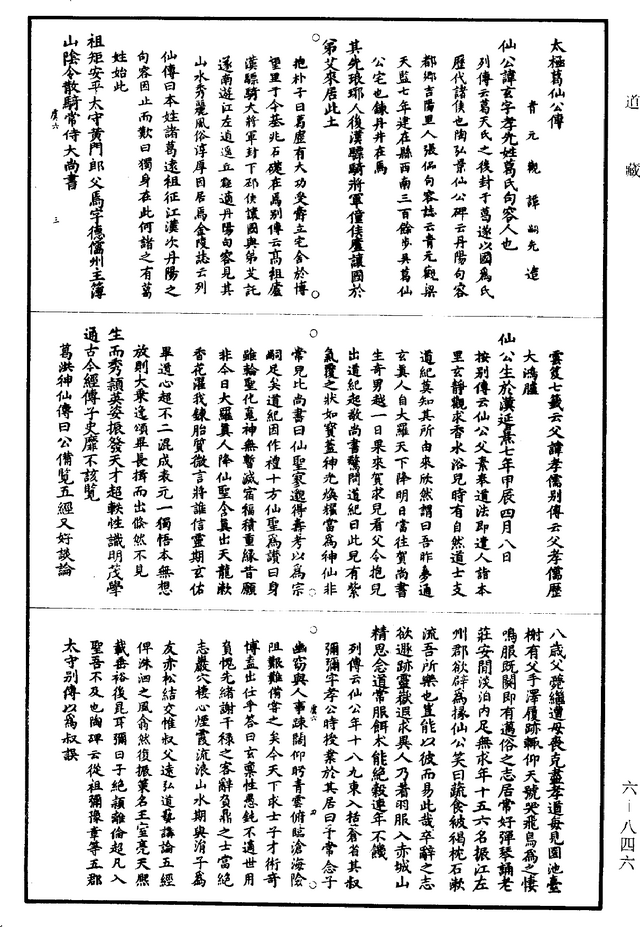 道藏
太極葛仙公傳
青元觀譚嗣先造
仙公諱玄字孝先姓葛氏句容人也
列傳云葛天氏之後封于葛遂以國為氏
歷代諸侯也陶弘景仙公碑云丹陽句容
都鄉吉陽里人張𠋣句容誌云青元觀梁
天監七年建在縣西南三百餘步吳葛仙
公宅也鍊丹井在焉
其先琅琊人後漢驃騎將軍僮侯廬讓國於
弟文來居此土
抱朴子曰葛廬有大功受爵立宅舍於博
望里于今基兆石礎在焉別傳云高祖廬
漢驃騎大將軍封下邳侯讓國與弟艾託
遂南遊江左逍遙丘壑適丹陽句容見其
山水秀麗風俗淳厚因居焉金陵誌云列
仙傳曰本姓諸葛遠祖征江漢次丹陽之
句容因止而歎曰獨身在此何諸之有葛
姓始此
祖矩安平太守黃門郎父焉字德儒州主簿
山陰令散騎常侍大尚書
虞六
三
雲笈七籤云父諱孝儒別傳云父孝儒歷
大鴻臚
仙公生於漢延熹七年甲辰四月八日
按別傳云仙公父素奉道法即遣人詣本
里玄靜觀求香水浴兒時有自然道士支
道紀莫知其所由來欣然謂曰吾昨夢通
玄真人自大羅天下降明日當往賀尚書
生奇男越一日果來賀求兒看父令抱兒
出道紀起敬尚書驚問道紀曰此兒有紫
氣覆之狀如寶蓋神光煥耀當為神仙非
常兒比尚書曰仙聖家邈得壽考以為宗
嗣足矣道紀因作禮十方仙聖為讚曰身
雖輪聖化竟神無暫滅宿福積重緣昔願
非今日大羅真人降仙聖合真出天龍漱
香花濯我鍊胎質微言將誰信靈期玄佑
畢道心超不二混成表元一獨悟本無想
放則大乘逵頌畢長揖而出倏然不見
生而秀穎英姿振發天才超軼性識明茂學
通古今經傳子史靡不該覽
葛洪神仙傳曰公備覽五經又好談論
八歲父薨繼遭母喪克盡孝道每見園池臺
榭有父手澤履跡輒仰天號哭飛鳥為之悽
鳴服既闋即有邁俗之志居常好彈琴誦老
莊安閒淡泊內足無求年十五六名振江左
州郡欲辟為掾仙公笑曰蔬食被褐枕石漱
流吾所樂也豈能以彼而易此哉卒辭之志
欲遯跡靈嶽退求異人乃着羽服入赤城山
精思念道常服餌朮能絕穀連年不饑
列傳云仙公年十八九東入括蒼省其叔
彌彌字孝公時授業於其居曰子常念子
幽窈與人事疎闊仰眄青雲俯瞰滄海險
阻艱難備嘗之矣今天下求士子才術奇
博盍出仕乎荅曰玄稟性愚鈍不適世用
負愧先緒謝干祿之客辭負鼎之士當絕
志巖穴棲心煙霞流浪山水期與涓子為
友赤松結交惟叔父遠弘道藝講論五經
俾洙泗之風翕然復振策名王室亮天熙
載垂裕後昆耳彌曰子絕穎離倫超凡入
聖吾不及也陶碑云從祖彌豫章等五郡
太守別傳以為叔誤
虞六
四
六－八四六